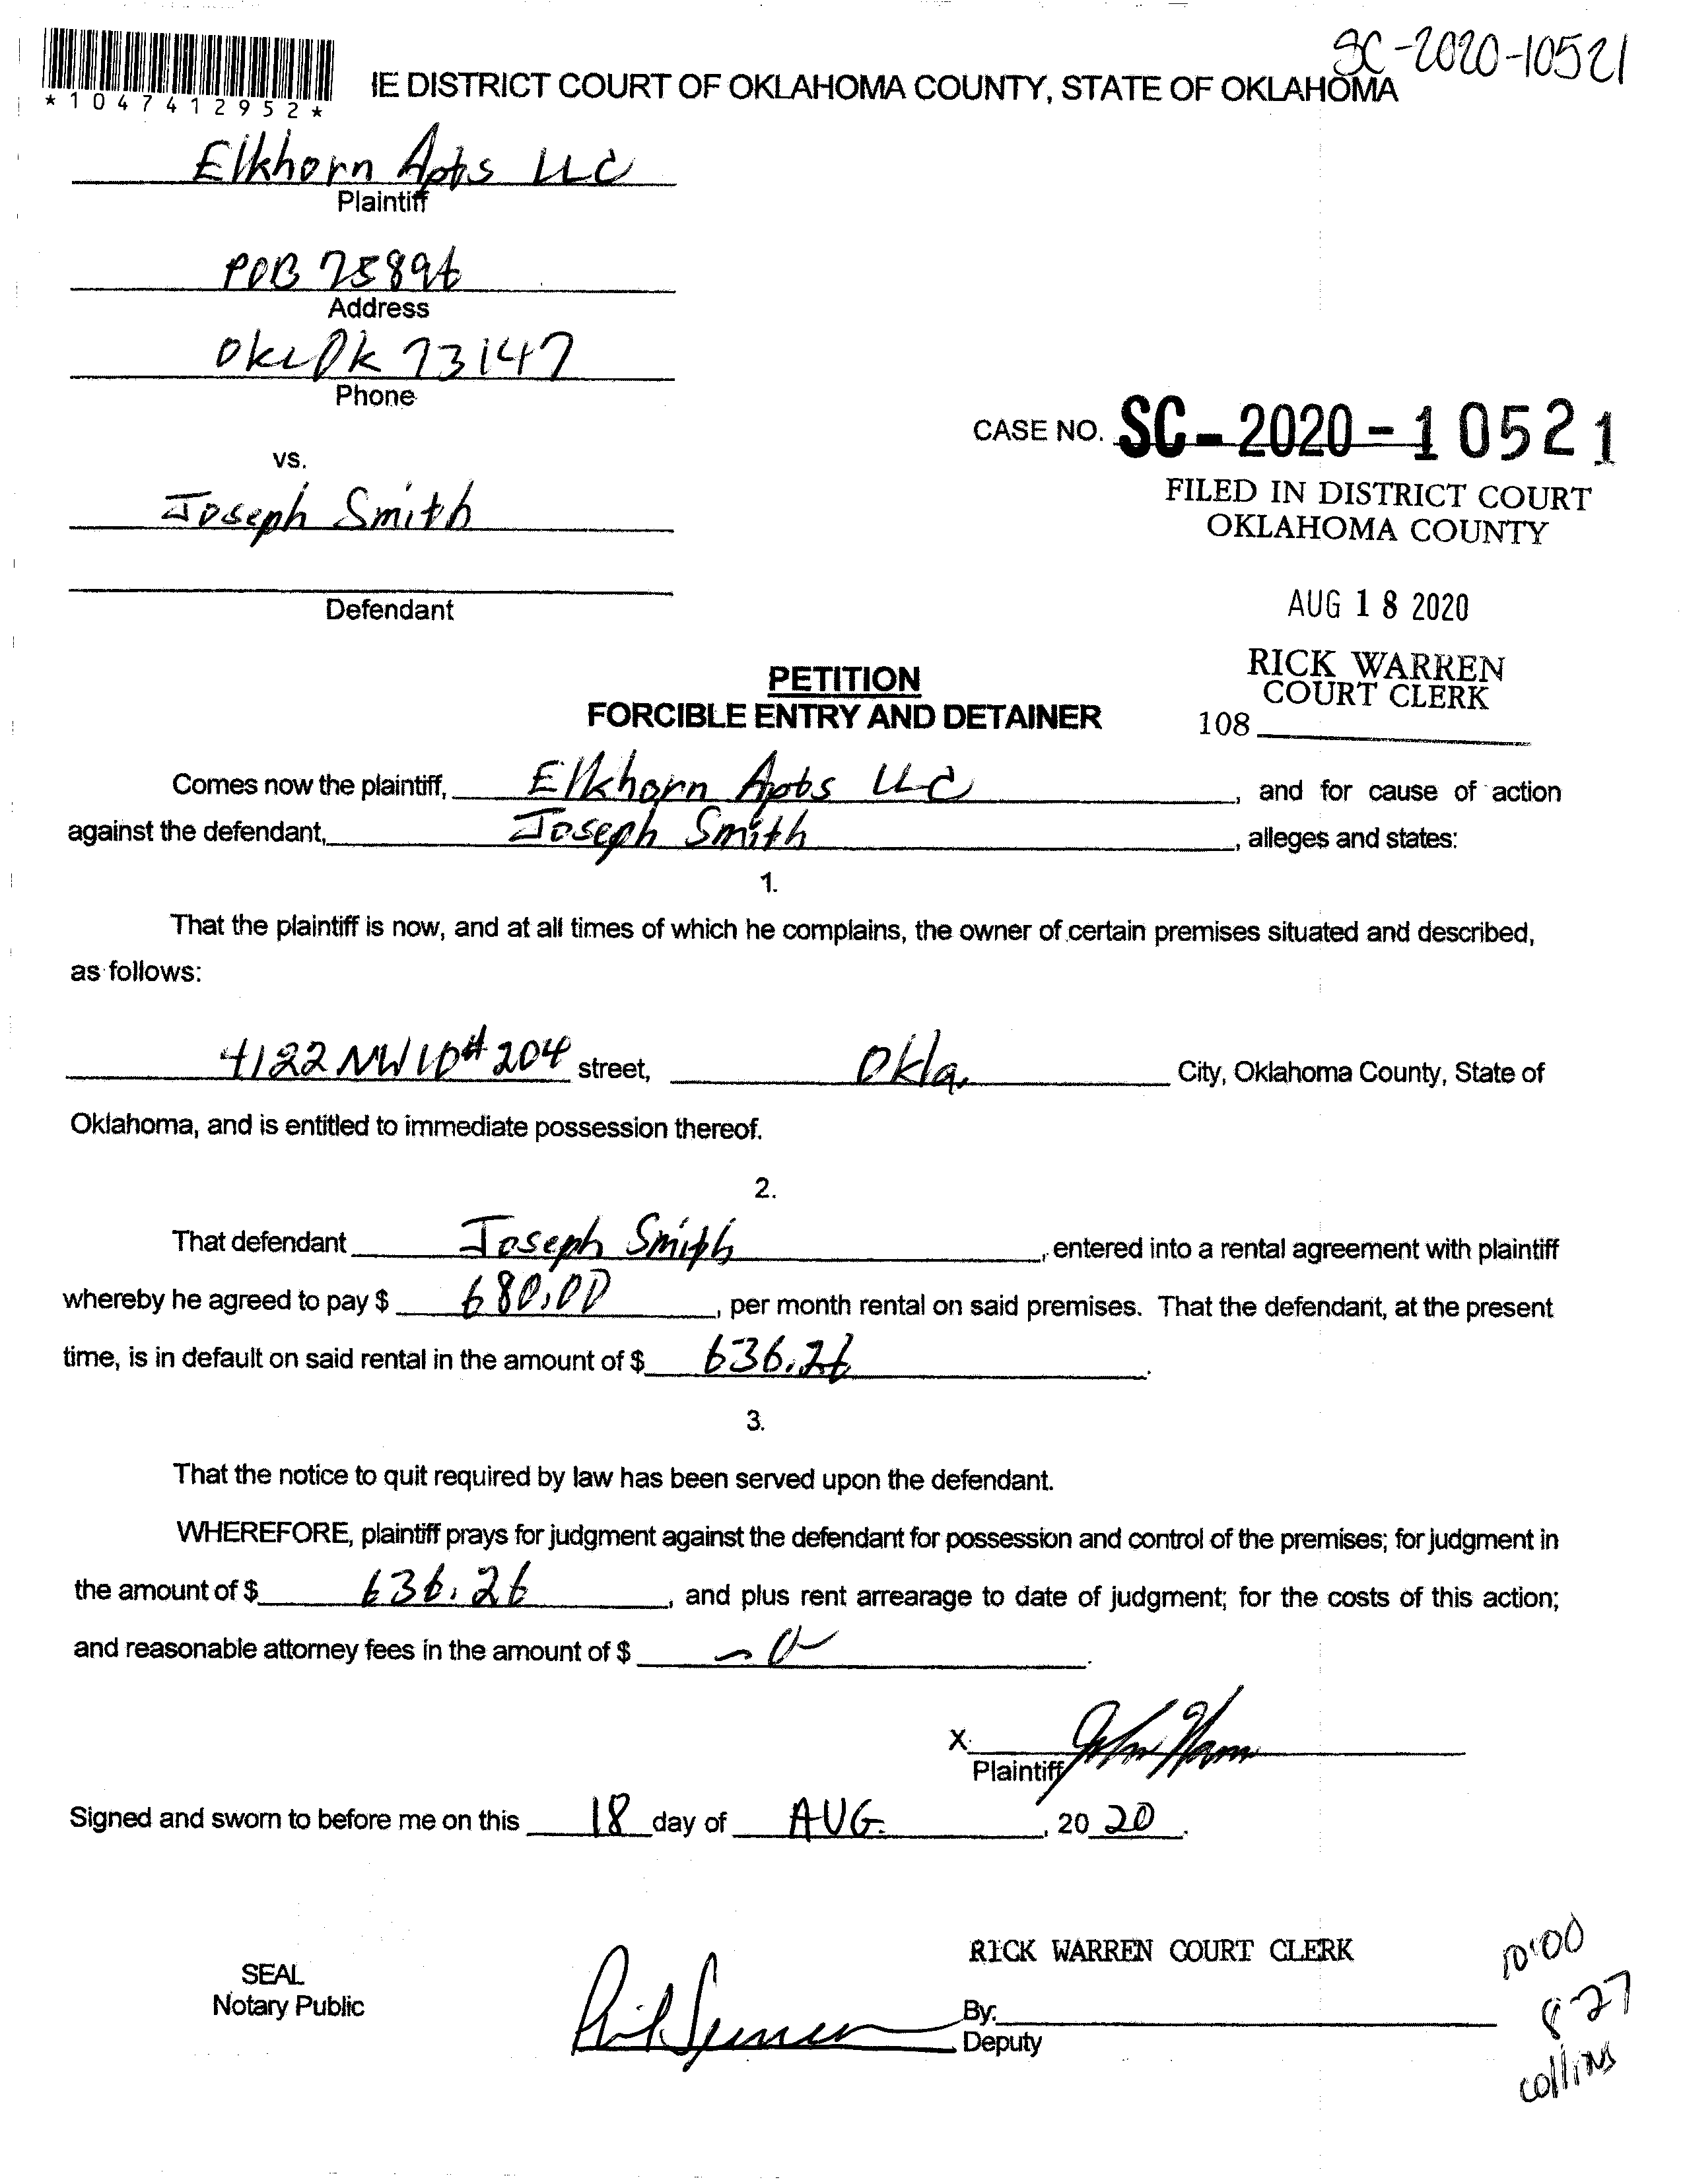 SC-2020-10521
*1047412952*
IE DISTRICT COURT OF OKLAHOMA COUNTY, STATE OF OKLAHOMA
Elkhorn Apts LLC
Plaintiff
POB 75896
Address
OKC OK 73147
Phone
CASE NO. SC-2020-10521
vs.
FILED IN DISTRICT COURT
OKLAHOMA COUNTY
Joseph Smith
Defendant
AUG 18 2020
RICK WARREN
COURT CLERK
108
PETITION
FORCIBLE ENTRY AND DETAINER
Comes now the plaintiff, Elkhorn Apts LLC, and for cause of action
against the defendant, Joseph Smith, alleges and states:
1.
That the plaintiff is now, and at all times of which he complains, the owner of certain premises situated and described,
as follows:
4122 NW 10 # 204 street, Okla. City, Oklahoma County, State of
Oklahoma, and is entitled to immediate possession thereof.
2.
That defendant Joseph Smith, entered into a rental agreement with plaintiff
whereby he agreed to pay $ 680.00, per month rental on said premises. That the defendant, at the present
time, is in default on said rental in the amount of $ 636.26.
3.
That the notice to quit required by law has been served upon the defendant.
WHEREFORE, plaintiff prays for judgment against the defendant for possession and control of the premises; for judgment in
the amount of $ 636.26, and plus rent arrearage to date of judgment; for the costs of this action;
and reasonable attorney fees in the amount of $ -0-.
X
Plaintiff
Signed and sworn to before me on this 18 day of AUG., 20 20.
RICK WARREN COURT CLERK
SEAL
Notary Public
By:
Deputy
10:00
8-27
collins